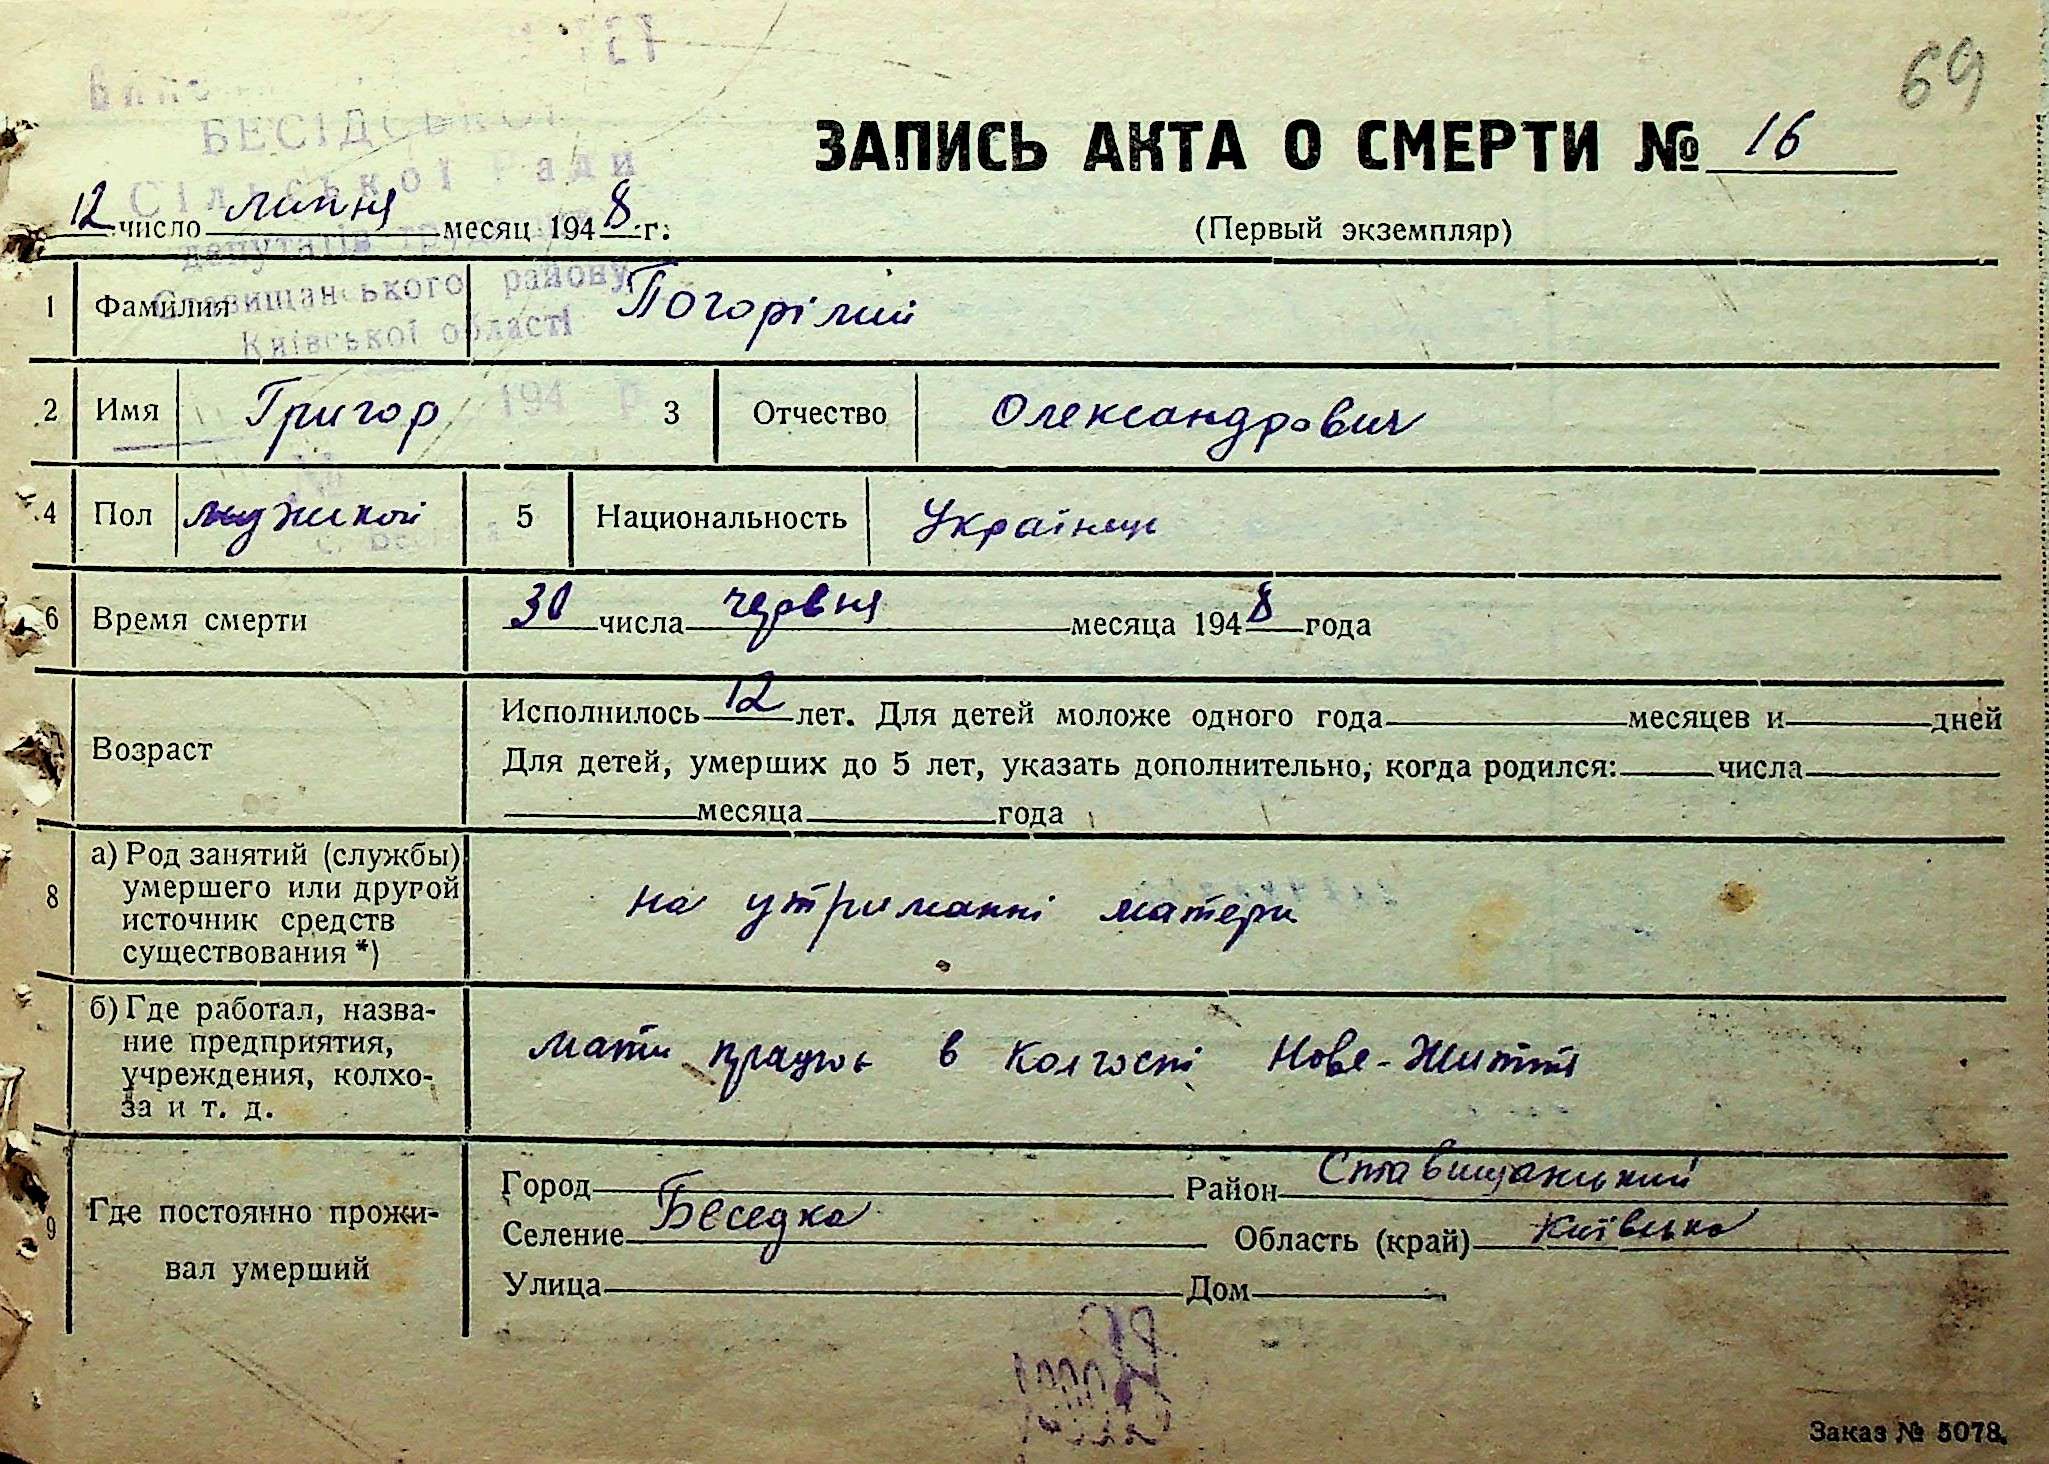 69
БЕСІДСЬКОЇ
Сільської Ради
депутатів
Ставищанського району
Київської області
194 р
ЗАПИСЬ АКТА О СМЕРТИ № 16
12 число липня месяц 1948 г.
(Первый экземпляр)
1 Фамилия Погорілий
2 Имя Григор 3 Отчество Олександрович
4 Пол мужской 5 Национальность Українець
6 Время смерти 30 числа червня месяца 1948 года
Возраст
Исполнилось 12 лет. Для детей моложе одного года месяцев и дней
Для детей, умерших до 5 лет, указать дополнительно, когда родился: числа
месяца года
8 а) Род занятий (службы)
умершего или другой
источник средств
существования *)
на утриманні матери
б) Где работал, назва-
ние предприятия,
учреждения, колхо-
за и т. д.
мати працює в колгоспі Нове-Життя
9 Где постоянно прожи-
вал умерший
Город Район Ставищанський
Селение Беседка Область (край) Київська
Улица Дом
Заказ № 5078.